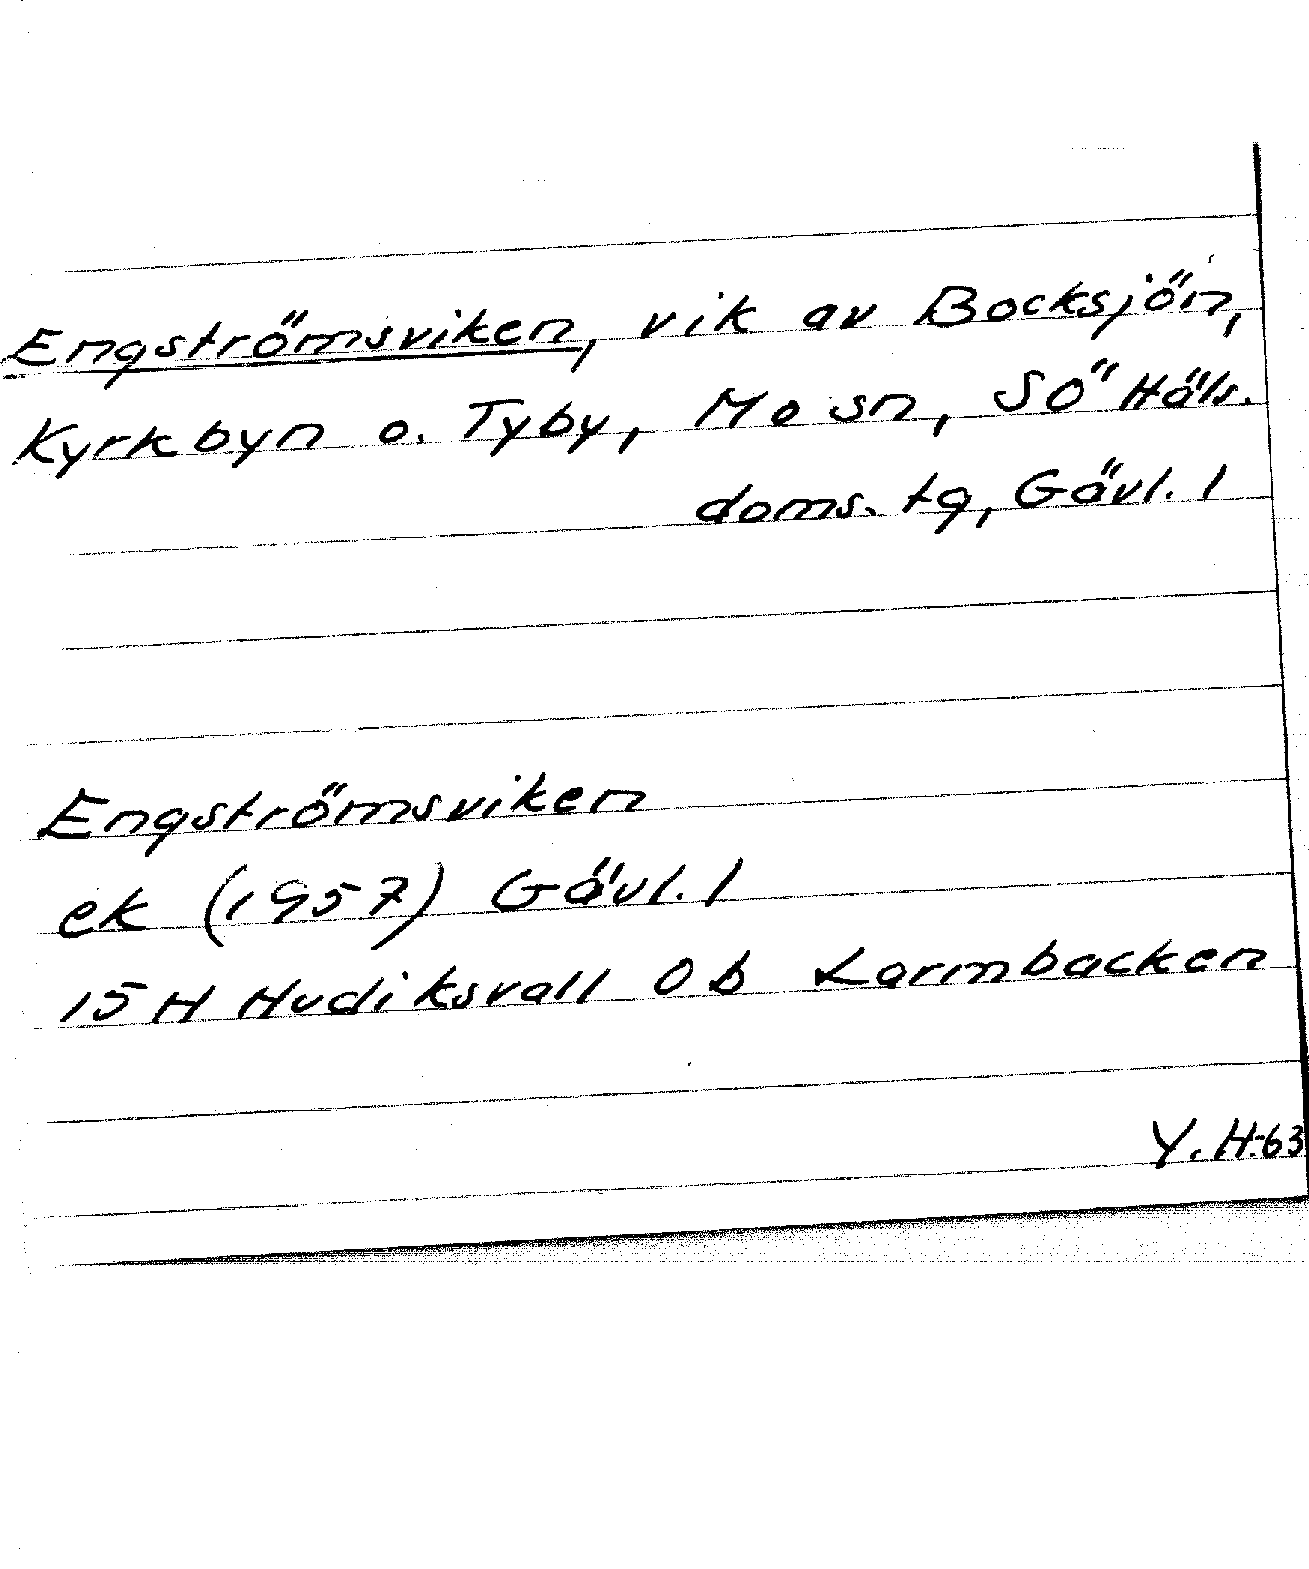 Engströmsviken, vik av Bocksjön,
Kyrkbyn o. Tyby, Mo sn, SÖ Häls.
doms. tg, Gävl. l
Engströmsviken
ek (1957) Gävl. l
15 H Hudiksvall 0 b Larmbacken
Y. H-63